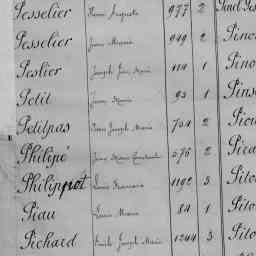 Pesselier Pierre Auguste 977 2 Pinel
Pesselier Jean Marie 949 2 Pino
Peslier Joseph Jean Marie 414 1 Pino
Petit Jean Marie 93 1 Pins
Petitpas Jean Joseph Marie 754 2 Piou
Philipé Jean Marie Constant 576 2 Pira
Philippot Louis Francois 1192 3 Pito
Piau Louis Marie 84 1 Pito
Pichard Emile Joseph Marie 1244 3 Pito